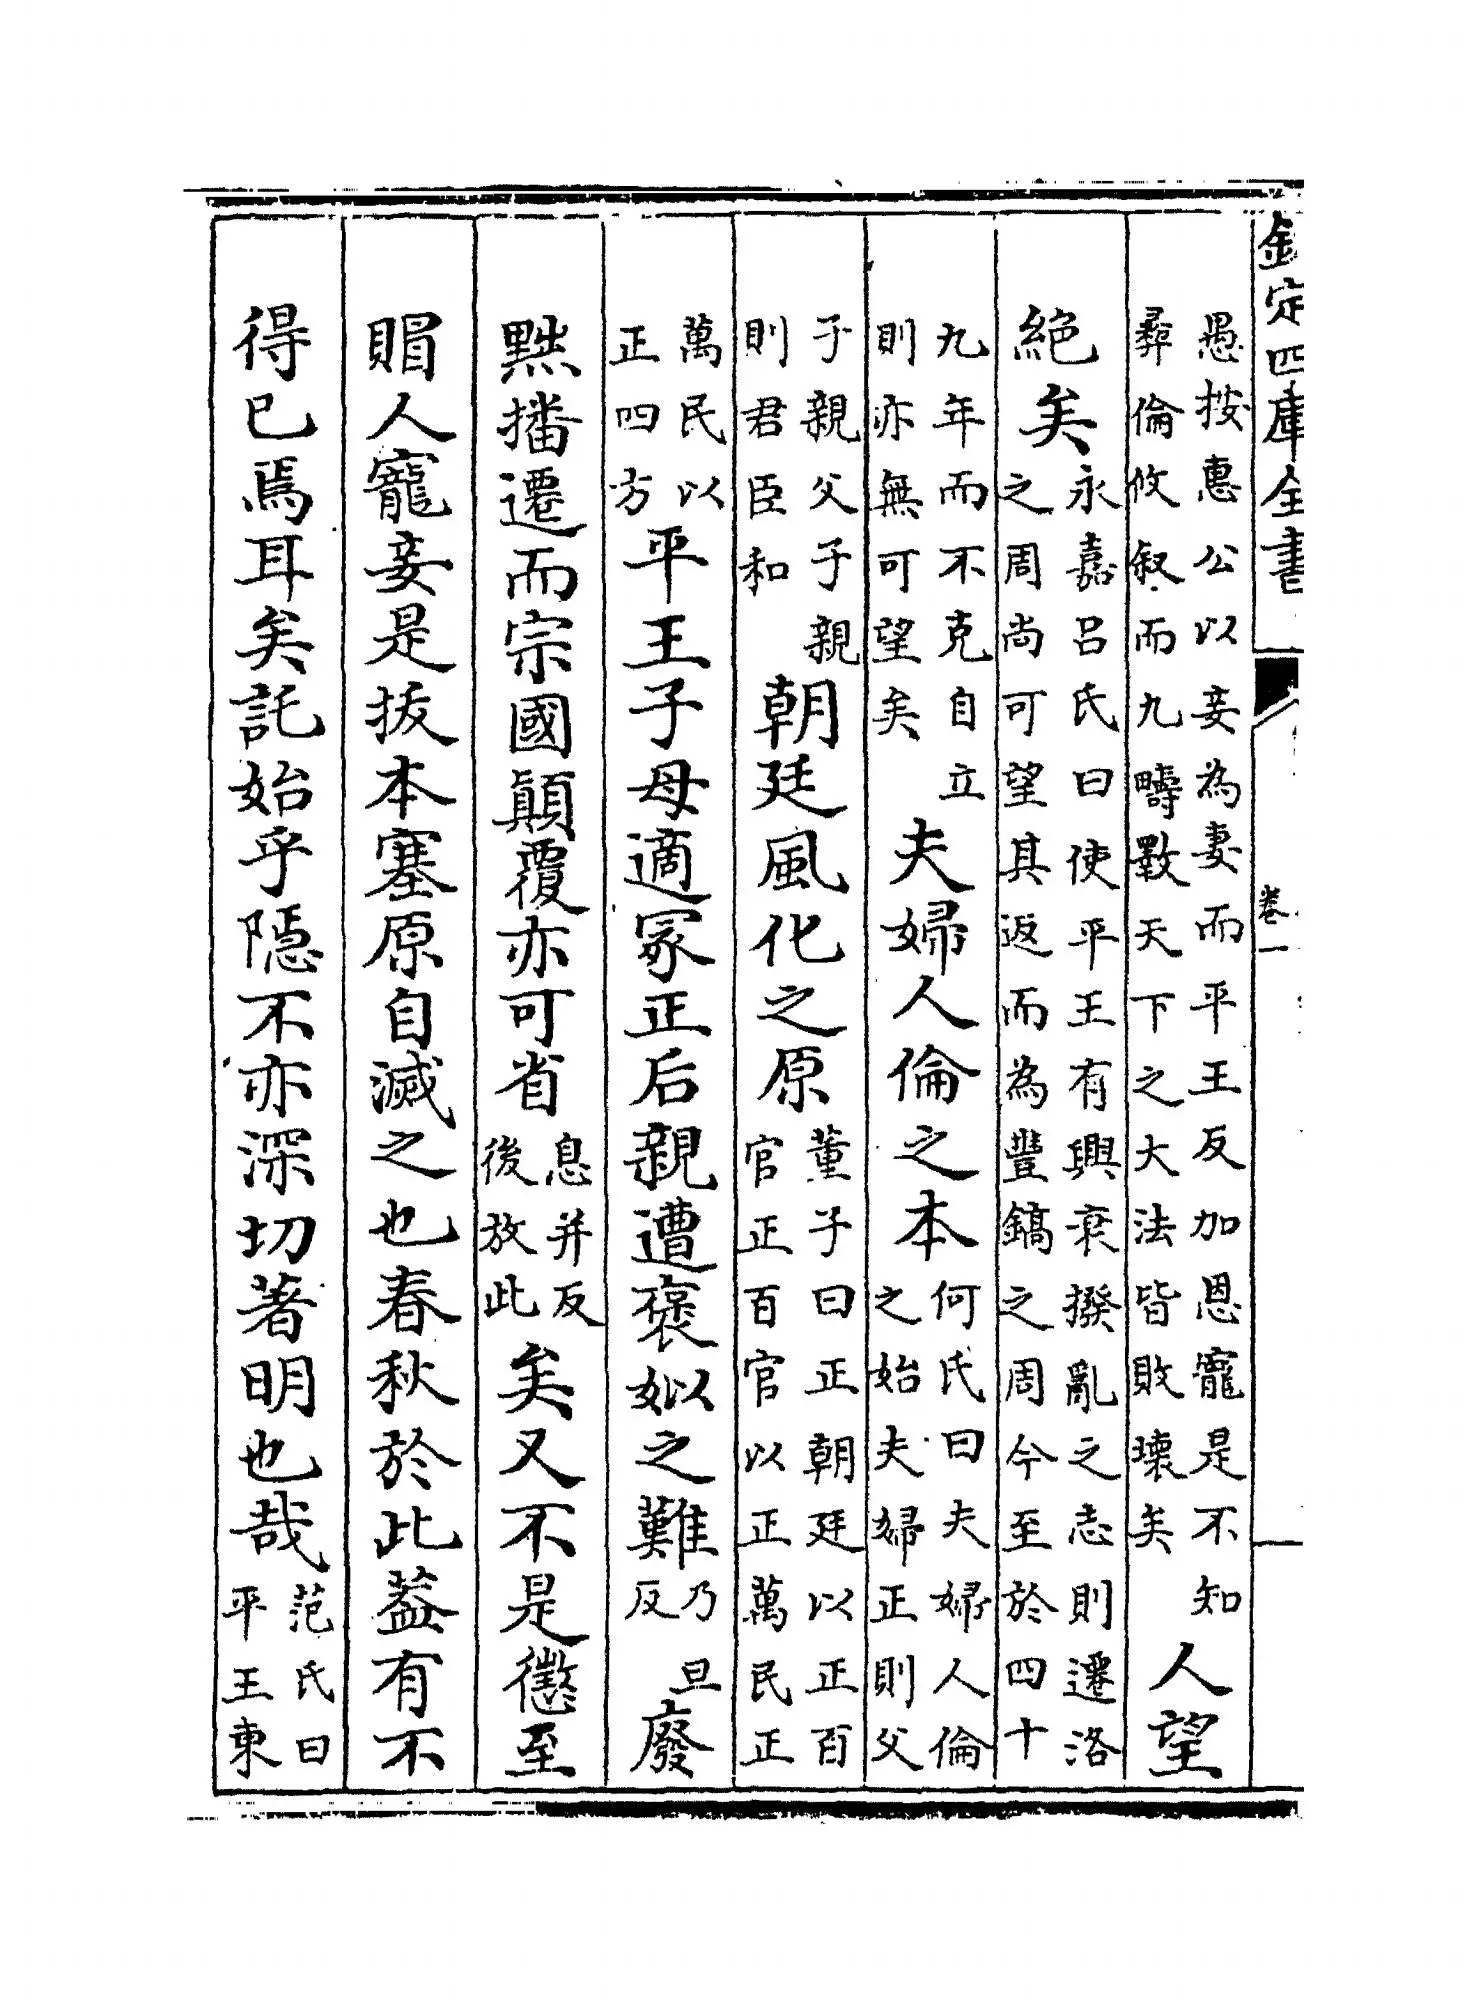 欽定四庫全書
卷一
愚按惠公以妾為妻而平王反加恩寵是不知
彝倫攸叙而九疇斁天下之大法皆敗壞矣
人望
絶矣
永嘉呂氏曰使平王有興衰撥亂之志則遷洛
之周尚可望其返而為豐鎬之周今至於四十
九年而不克自立
則亦無可望矣
夫婦人倫之本
何氏曰夫婦人倫
之始夫婦正則父
子親父子親
則君臣和
朝廷風化之原
董子曰正朝廷以正百
官正百官以正萬民正
萬民以
正四方
平王子母適冢正后親遭褒姒之難
乃旦
反
廢
黜播遷而宗國顛覆亦可省
息并反
後放此
矣又不是懲至
賵人寵妾是拔本塞原自滅之也春秋於此葢有不
得已焉耳矣託始乎隠不亦深切著明也哉
范氏曰
平王東